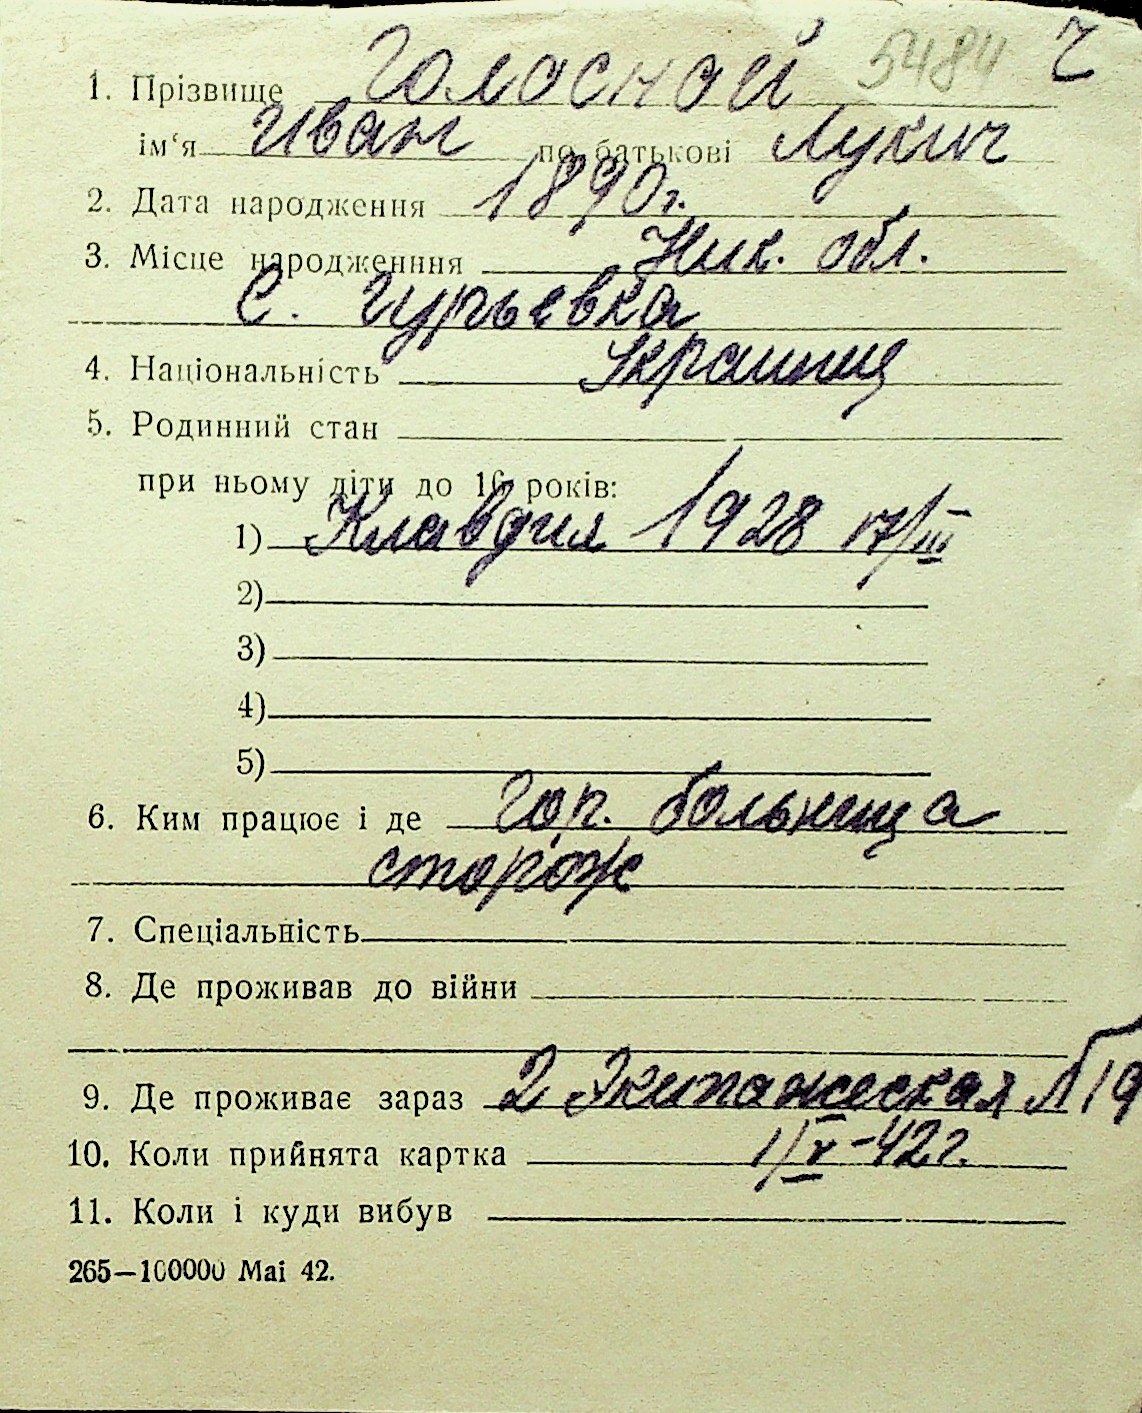 5484 г
1. Прізвище Голосной
ім‘я Иван по батькові Лукич
2. Дата народження 1890г.
3. Місце народженння Ник. обл.
с. Гурьевка
4. Національність Украинец
5. Родинний стан
при ньому діти до 16 років:
1) Клавдия 1928 17/III
2)
3)
4)
5)
6. Ким працює і де Гор. больница
сторож
7. Спеціальність
8. Де проживав до війни
9. Де проживає зараз 2 Экипажеская №19
10. Коли прийнята картка 1/V-42г.
11. Коли і куди вибув
265—100000 Маі 42.